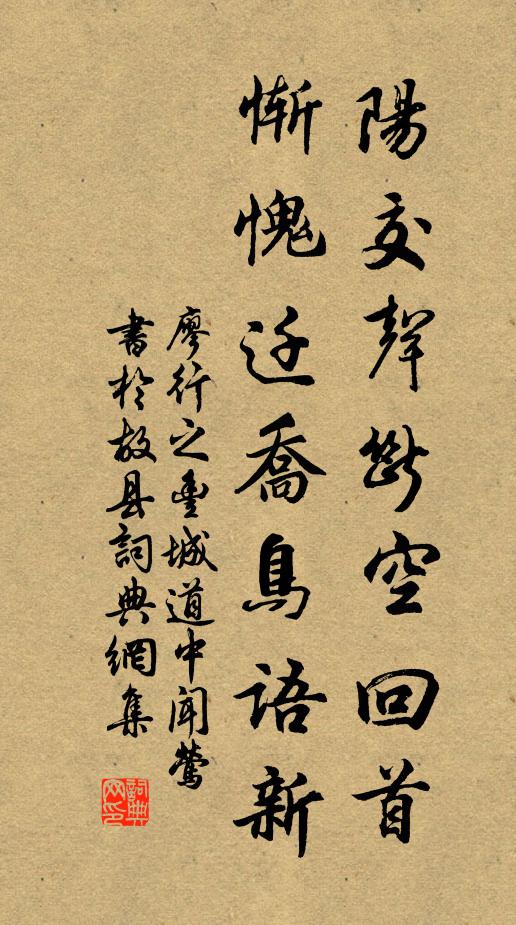 陽交聲斷空回首
慚愧迁喬鳥語新
廖行之豐城道中聞鶯
書於故县詞典網集
詞典网印